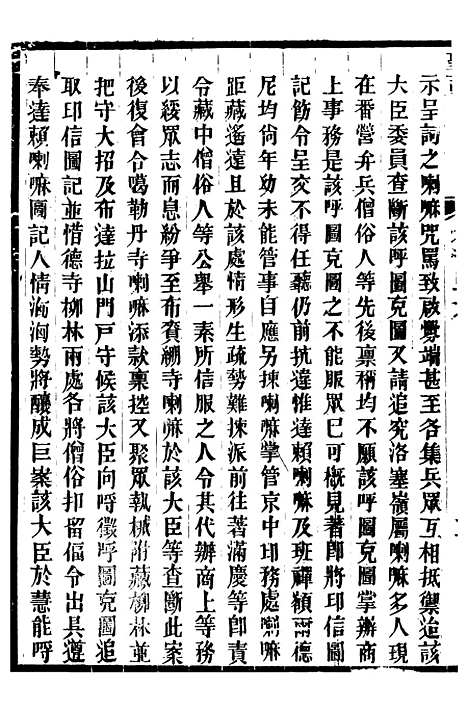 示呈詞之喇嘛咒罵致啟釁端甚至各集兵眾互相抵禦迨該
大臣委員查斷該呼圖克圖又請追究洛塞嶺屬喇嘛多人現
在番營弁兵僧俗人等先後稟稱均不願該呼圖克圖掌辦商
上事務是該呼圖克圖之不能服眾已可概見著即將印信圖
記飭令呈交不得任聽仍前抗違惟達賴喇嘛及班禪額爾德
尼均尚年幼未能管事自應另揀喇嘛掌管京中印務處喇嘛
距藏遙遠且於該處情形生疏勢難揀派前往著滿慶等即責
令藏中僧俗人等公舉一素所信服之人令其代辦商上等務
以綏眾志而息紛爭至布賚綳寺喇嘛於該大臣等查斷此案
後復會令噶勒丹寺喇嘛添款稟控又聚眾執械附藏柳林並
把守大招及布達拉山門戶守候該大臣向呼徵呼圖克圖追
取印信圖記並惜德寺柳林兩處各將僧俗扣留偪令出具遵
奉達賴喇嘛圖記人情洶洶勢將釀成巨案該大臣於慧能呼